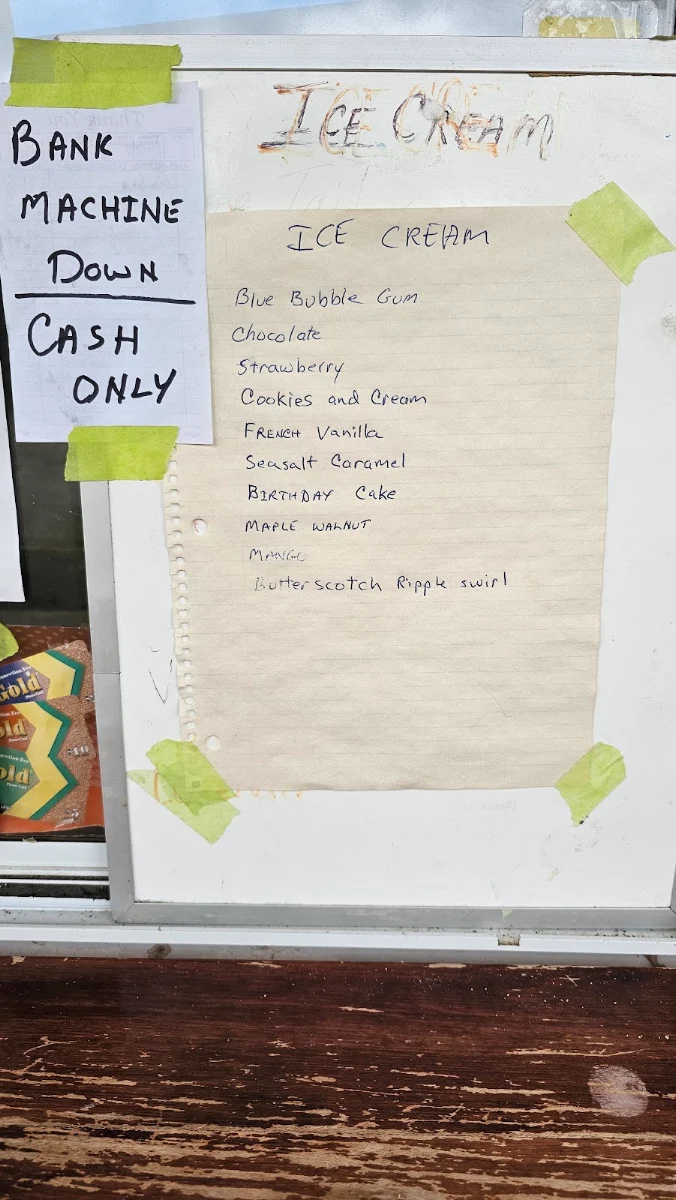 BANK
MACHINE
DOWN
CASH
ONLY
ICE CREAM
ICE CREAM
Blue Bubble Gum
Chocolate
Strawberry
Cookies and Cream
FRENCH Vanilla
Seasalt Caramel
BIRTHDAY Cake
MAPLE WALNUT
MANGO
Butterscotch Ripple swirl
Gold